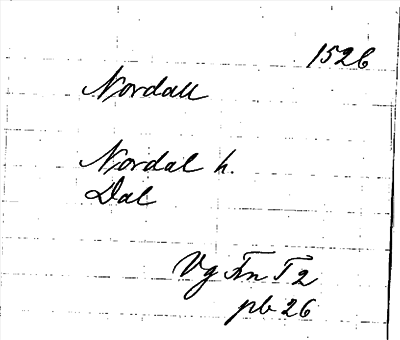 1526
Nordall
Nordal h.
Dal
Vg Fn T 2
pb 26